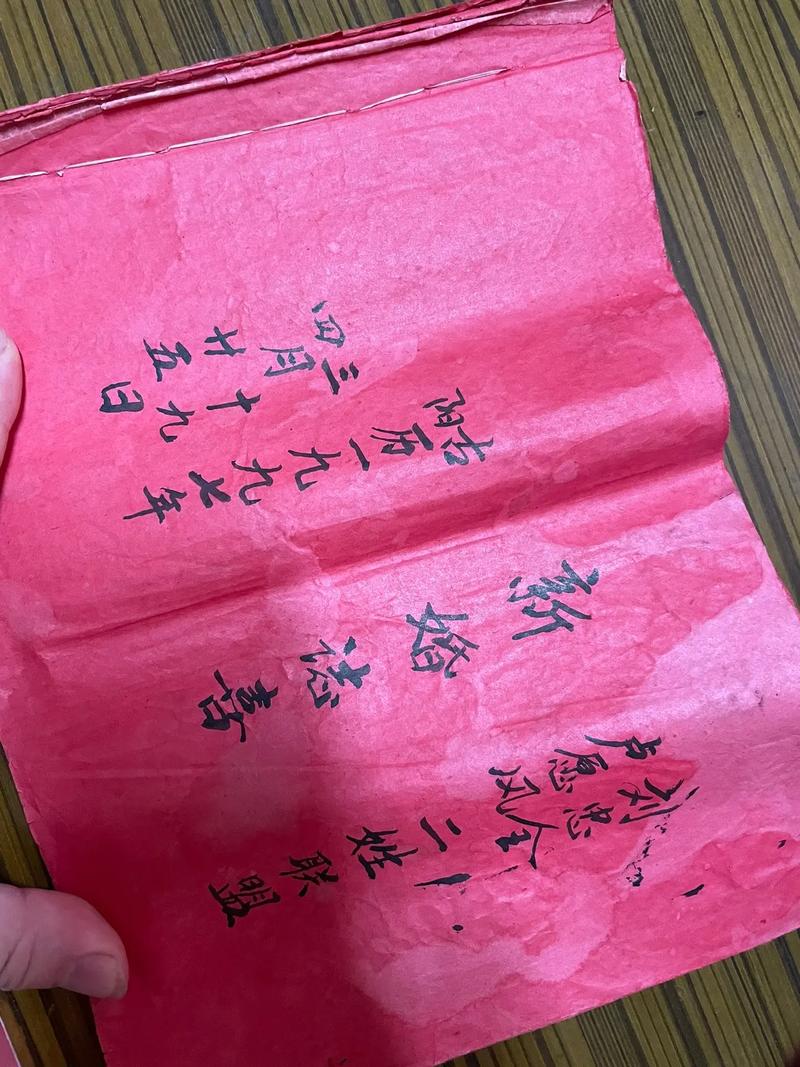 刘忠全
卢愿风
二姓联盟
新婚誌喜
古
阳
历一九九七年
三 十九
四 廿五
月 日